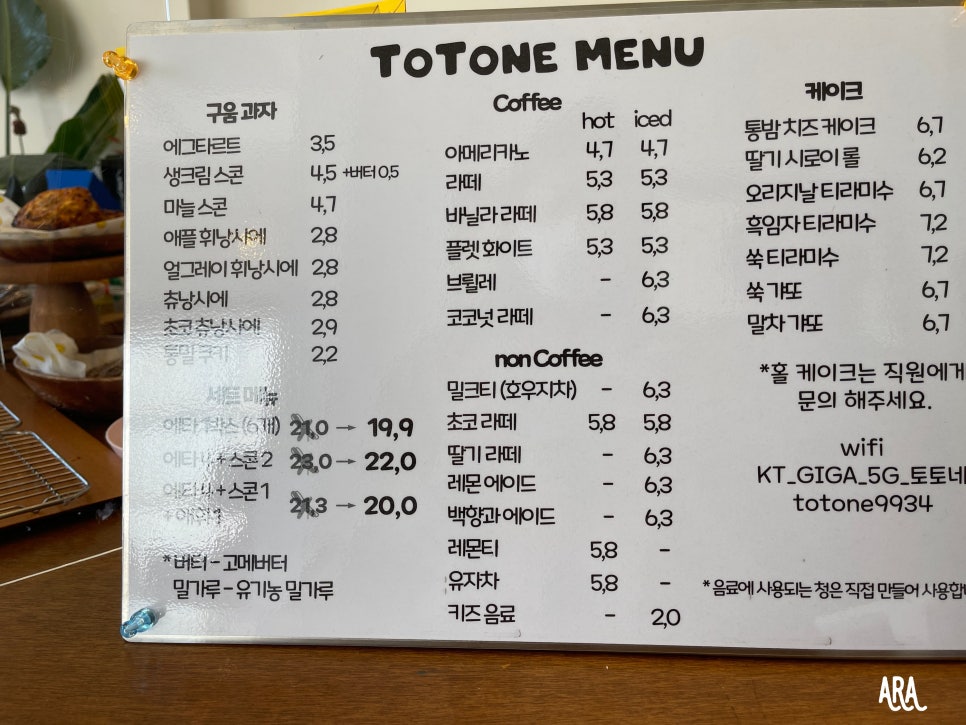 TOTONE MENU
구움 과자
에그타르트 3,5
생크림 스콘 4,5 +버터 0,5
마늘 스콘 4,7
애플 휘낭시에 2,8
얼그레이 휘낭시에 2,8
츄낭시에 2,8
초코 츄낭시에 2,9
통밀 쿠키 2,2
세트 메뉴
에타 1박스 (6개) 21,0 → 19,9
에타 4 + 스콘 2 23,0 → 22,0
에타 4 + 스콘 1 21,3 → 20,0
+ 애휘 1
*버터 - 고메버터
밀가루 - 유기농 밀가루
Coffee
hot iced
아메리카노 4,7 4,7
라떼 5,3 5,3
바닐라 라떼 5,8 5,8
플렛 화이트 5,3 5,3
브륄레 - 6,3
코코넛 라떼 - 6,3
non Coffee
밀크티 (호우지차) - 6,3
초코 라떼 5,8 5,8
딸기 라떼 - 6,3
레몬 에이드 - 6,3
백향과 에이드 - 6,3
레몬티 5,8 -
유자차 5,8 -
키즈 음료 - 2,0
케이크
통밤 치즈 케이크 6,7
딸기 시로이 롤 6,2
오리지날 티라미수 6,7
흑임자 티라미수 7,2
쑥 티라미수 7,2
쑥 갸또 6,7
말차 갸또 6,7
*홀 케이크는 직원에게
문의 해주세요.
wifi
KT_GIGA_5G_토토네
totone9934
*음료에 사용되는 청은 직접 만들어 사용합
ARA